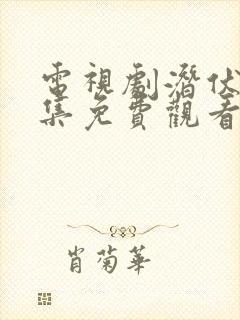 電視劇潛伏
集免費觀看
肖菊華